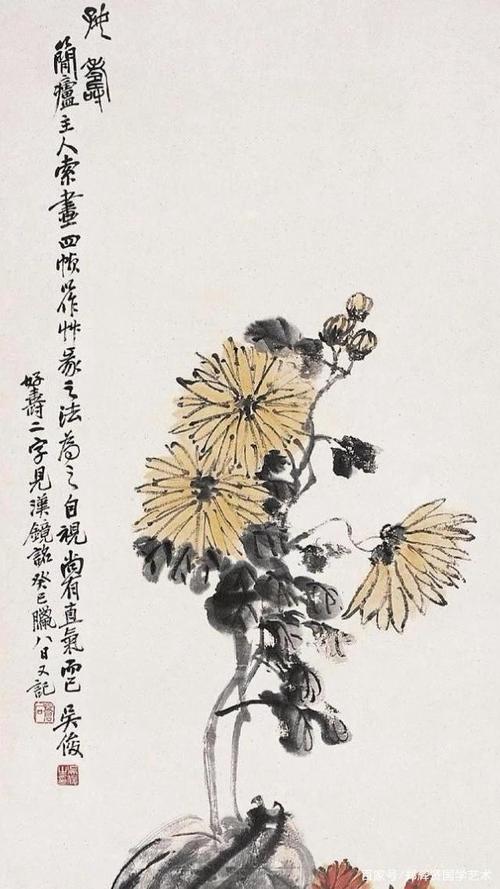 好壽
簡廬主人索畫四幀以作艸篆之法爲之自視尚有直氣而已 吳俊
好壽二字見漢鏡銘癸巳臘八日又記
百家号/郑辉贤国学艺术